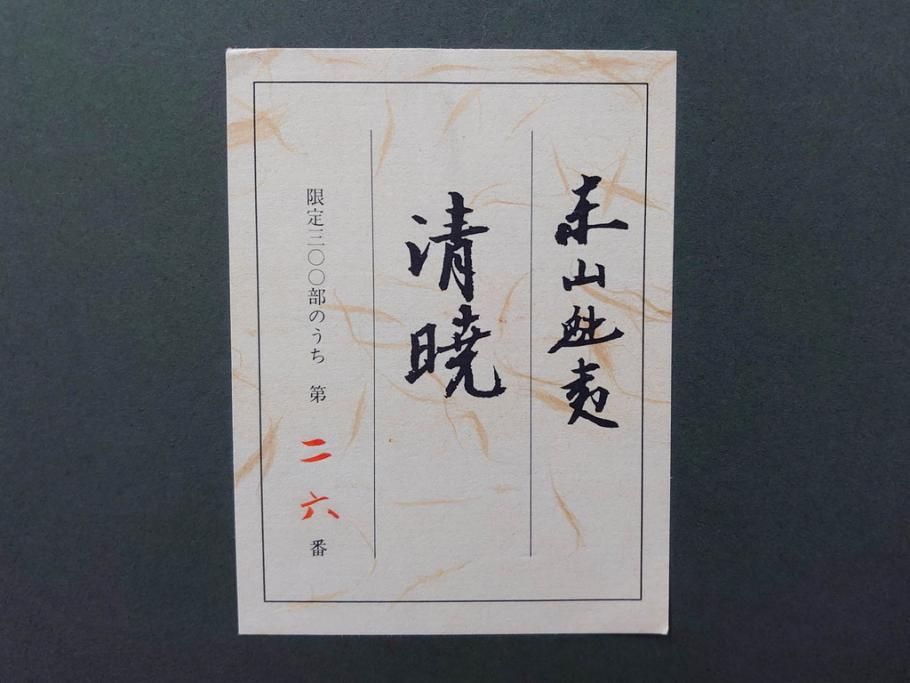 東山魁夷
清暁
限定三〇〇部のうち 第二六番